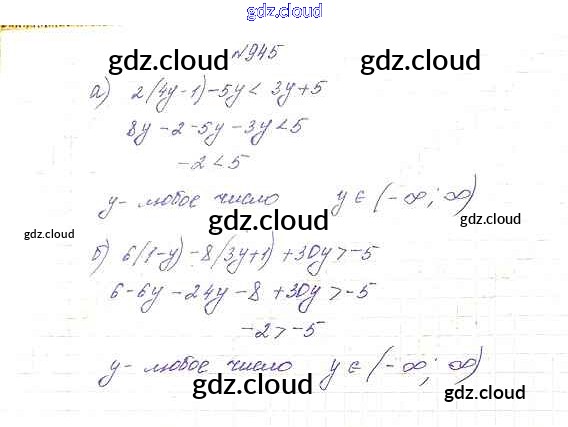 gdz.cloud
№945
gdz.cloud gdz.cloud
а) 2(4y-1)-5y< 3y+5
8y-2-5y-3y<5
-2<5
y- любое число y∈(-∞;∞)
gdz.cloud
gdz.cloud gdz.cloud
б) 6(1-y)-8(3y+1)+30y>-5
6-6y-24y-8+30y>-5
-2>-5
y- любое число y∈(-∞;∞)
gdz.cloud gdz.cloud